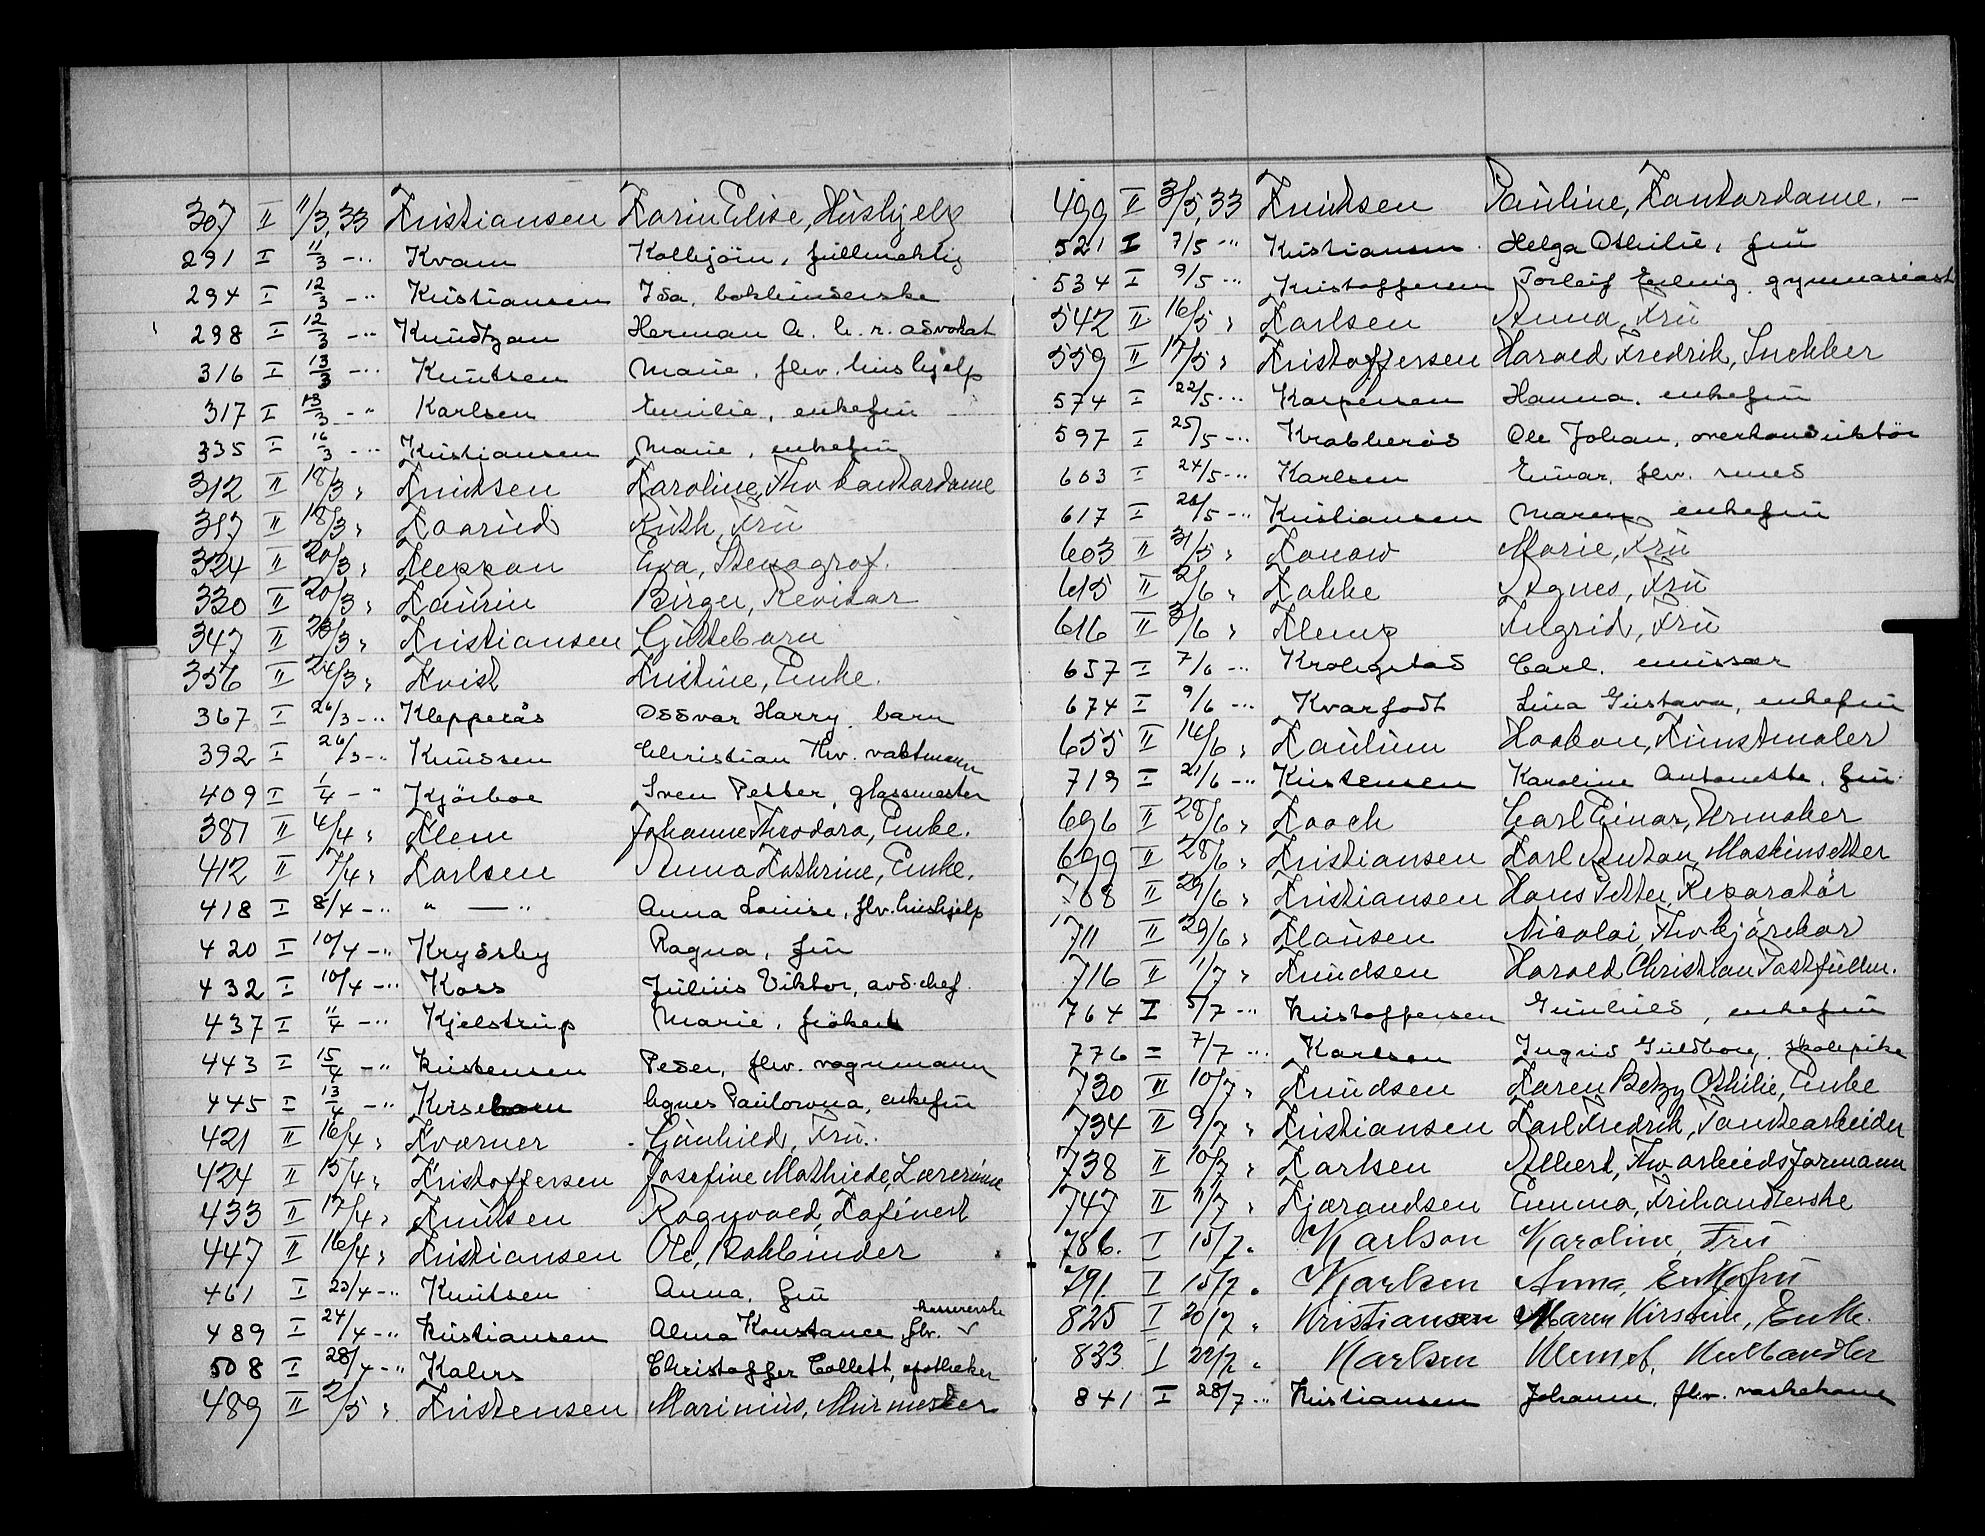 307 II 11/3,33 Kristiansen Karin Elise, Hushjelp
291 I 11/3 -" Kvam Kolbjörn, fullmektig
294 I 12/3 -" Kristiansen Ida, bokbinderske
298 I 12/3 -" Knudtzon Herman A. h. r. advokat
316 I 13/3 -" Knutsen Marie, flv. hushjelp
317 I 13/3 -" Karlsen Emilie, enkefru
335 I 16/3 -" Kristiansen Marie, enkefru
312 II 18/3 " Knudsen Karoline, Fhv kontordame
317 II 18/3 " Kaarud Ruth, Fru
324 II 20/3 " Keppan Eva, Stenograf.
330 II 20/3 " Kaurin Birger, Revisor
347 II 23/3 " Kristiansen Guttebarn
356 II 24/3 " Kvist Kristine, Enke.
367 I 26/3 -" Klepperås Oddvar Harry, barn
392 I 26/3 -" Knudsen Christian Thv. vaktmann
409 I 1/4 -" Kjörboe Sven Petter, glassmester
387 II 4/4 " Klem Johanne Theodora, Enke.
412 II 7/4 " Karlsen Anna Kathrine, Enke.
418 I 8/4 -" " — " Anna Louise, flv. hushjelp
420 I 10/4 -" Krydsby Ragna, fru
432 I 10/4 -" Koss Julius Viktor, avd. chef
437 I 11/4 -" Kjelstrup Marie, fröken
443 I 15/4 -" Kristensen Peder, flv. vognmann
445 I 13/4 -" Kirsebom Agnes Paulowna, enkefru
421 II 16/4 " Kværner Gunhild, Fru.
424 II 15/4 " Kristoffersen Josefine Mathilde, Lærerinne
433 II 17/4 " Knudsen Ragnvald, Kafévert
447 II 16/4 " Kristiansen Ole, Bokbinder
461 I 23/4 -" Knutsen Anna, fru
489 I 24/4 -" Kristiansen Alma Konstance flv. kassererske
508 I 28/4 -" Kolers Christoffer Collett, apotheker
489 II 2/5 " Kristensen Marinius, Murmester
499 II 3/5,33 Knudsen Pauline, Kontordame. -
521 I 7/5 -" Kristiansen Helga Othilie, fru
534 I 9/5 -" Kristoffersen Torleif Erling, gymnasiast
542 II 16/5 " Karlsen Anna, Fru
559 II 17/5 " Kristoffersen Harald Fredrik, Snekker
574 I 22/5 -" Kaspersen Hanna, enkefru
597 I 25/5 -" Krabberød Ole Johan, overkonduktör
603 I 24/5 -" Karlsen Einar, flv. smed
617 I 26/5 -" Kristiansen Maren, enkefru
603 II 31/5 " Konow Marie, Fru
615 II 2/6 " Kokke Agnes, Fru
616 II 3/6 " Klemp Ingrid, Fru
657 I 7/6 -" Krokstad Carl, emissær
674 I 9/6 -" Kvarfodt Lina Gustava, enkefru
655 II 16/6 " Kaulum Haakon, Kunstmaler
713 I 21/6 -" Kristensen Karoline Antonette, fru
696 II 28/6 " Kooch Carl Einar, Urmaker
699 II 28/6 " Kristiansen Karl Anton, Maskinsetter
708 II 29/6 " Kristiansen Hans Petter, Reparatör
711 II 29/6 " Klausen Nicolai, Fhv kjörekar
716 II 1/7 " Knudsen Harald Christian, Postfullm.
764 I 5/7 -" Kristoffersen Gunhild, enkefru
776 I 7/7 -" Karlsen Ingrid Guldborg, skolepike
730 II 10/7 " Knudsen Karen Betzy Othilie, Enke
734 II 9/7 " Kristiansen Karl Fredrik, Tomtearbeider
738 II 10/7 " Karlsen Albert, Fhv arbeidsformann
747 II 11/7 " Kjærandsen Emma, Frihandlerske
786. I 15/7 " Karlson Karoline, Fru
791. I 15/7 " Karlsen Anna, Enkefru
825 I 20/7 " Kristiansen Maren Kirstine, Enke.
833 I 22/7 " Karlsen Klemet, Kullhandler
841 I 28/7 -" Kristiansen Johanne, flv. vaskekone